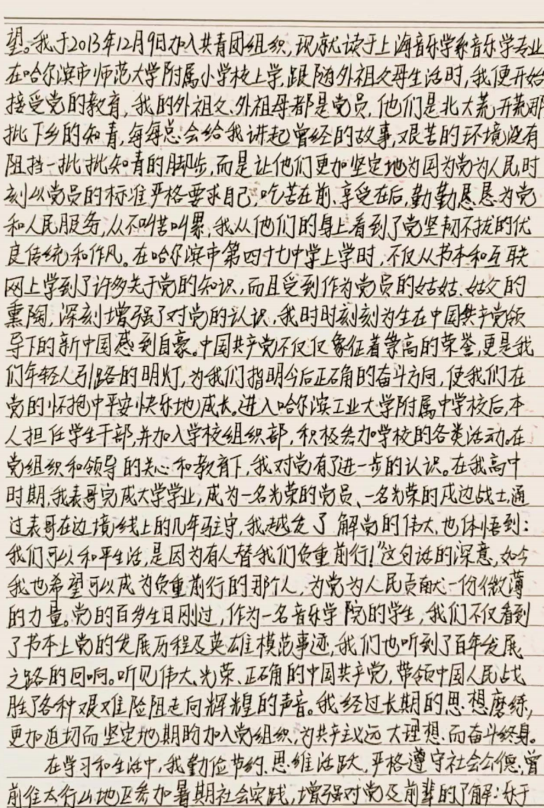 望。我于2013年12月9日加入共青团组织,现就读于上海音乐学院音乐学专业
在哈尔滨市师范大学附属小学校上学,跟随外祖父母生活时,我便开始
接受党的教育,我的外祖父、外祖母都是党员,他们是北大荒开荒那
批下乡的知青,每每总会给我讲起曾经的故事,艰苦的环境没有
阻挡一批批知青的脚步,而是让他们更加坚定地为国为党为人民,时
刻以党员的标准严格要求自己,吃苦在前、享受在后,勤勤恳恳为党
和人民服务,从不叫苦叫累,我从他们的身上看到了党坚韧不拔的优
良传统和作风。在哈尔滨市第四十七中学上学时,不仅从书本和互联
网上学到了许多关于党的知识,而且受到作为党员的姑姑、姑父的
熏陶,深刻增强了对党的认识,我时时刻刻为生在中国共产党领
导下的新中国感到自豪。中国共产党不仅仅象征着崇高的荣誉,更是我
们年轻人引路的明灯,为我们指明今后正确的奋斗方向,使我们在
党的怀抱中平安快乐地成长。进入哈尔滨工业大学附属中学校后,本
人担任学生干部,并加入学校组织部,积极参加学校的各类活动。在
党组织和领导的关心和教育下,我对党有了进一步的认识。在我高中
时期,我表哥完成大学学业,成为一名光荣的党员、一名光荣的戍边战士,通
过表哥在边境线上的几年驻守,我越发了解党的伟大,也体悟到:
我们可以和平生活,是因为有人替我们负重前行!"这句话的深意,如今
我也希望可以成为负重前行的那个人,为党为人民贡献一份微薄
的力量。党的百岁生日刚过,作为一名音乐学院的学生,我们不仅看到
了书本上党的发展历程及英雄模范事迹,我们也听到了百年发展
之路的回响。听见伟大、光荣、正确的中国共产党,带领中国人民战
胜了各种艰难险阻走向辉煌的声音。我经过长期的思想磨练,
更加迫切而坚定地期盼加入党组织,为共产主义远大理想而奋斗终身。
在学习和生活中,我勤俭节约、思维活跃、严格遵守社会公德,曾
前往太行山地区参加暑期社会实践,增强对党及前辈的了解;乐于